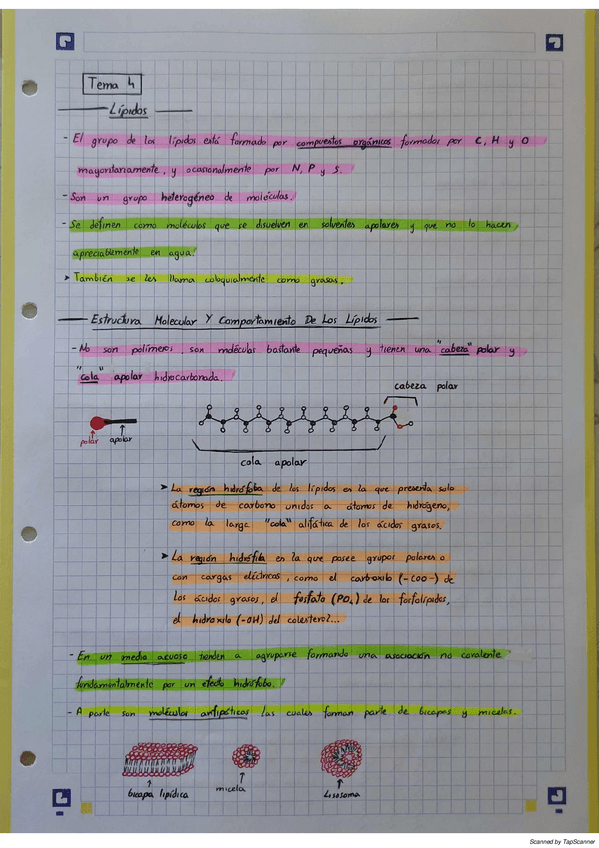 Tema 4
Lípidos
- El grupo de los lípidos está formado por compuestos orgánicos formados por C, H y O
mayoritariamente, y ocasionalmente por N, P y S.
- Son un grupo heterogéneo de moléculas.
- Se definen como moléculas que se disuelven en solventes apolares y que no lo hacen
apreciablemente en agua.
➤ También se les llama coloquialmente como grasas.
Estructura Molecular Y Comportamiento De Los Lípidos
- No son polímeros, son moléculas bastante pequeñas y tienen una "cabeza" polar y
"cola" apolar hidrocarbonada.
cabeza polar
polar apolar
cola apolar
➤ La región hidrófoba de los lípidos en la que presenta solo
átomos de carbono unidos a átomos de hidrógeno,
como la larga "cola" alifática de los ácidos grasos.
➤ La región hidrófila en la que posee grupos polares o
con cargas eléctricas, como el carboxilo (-COO-) de
los ácidos grasos, el fosfato (PO₄) de los fosfolípidos,
el hidroxilo (-OH) del colesterol...
- En un medio acuoso tienden a agruparse formando una asociación no covalente
fundamentalmente por un efecto hidrófobo.
- A parte son moléculas anfipáticas las cuales forman parte de bicapas y micelas.
bicapa lipídica
micela
Lisosoma
Scanned by TapScanner